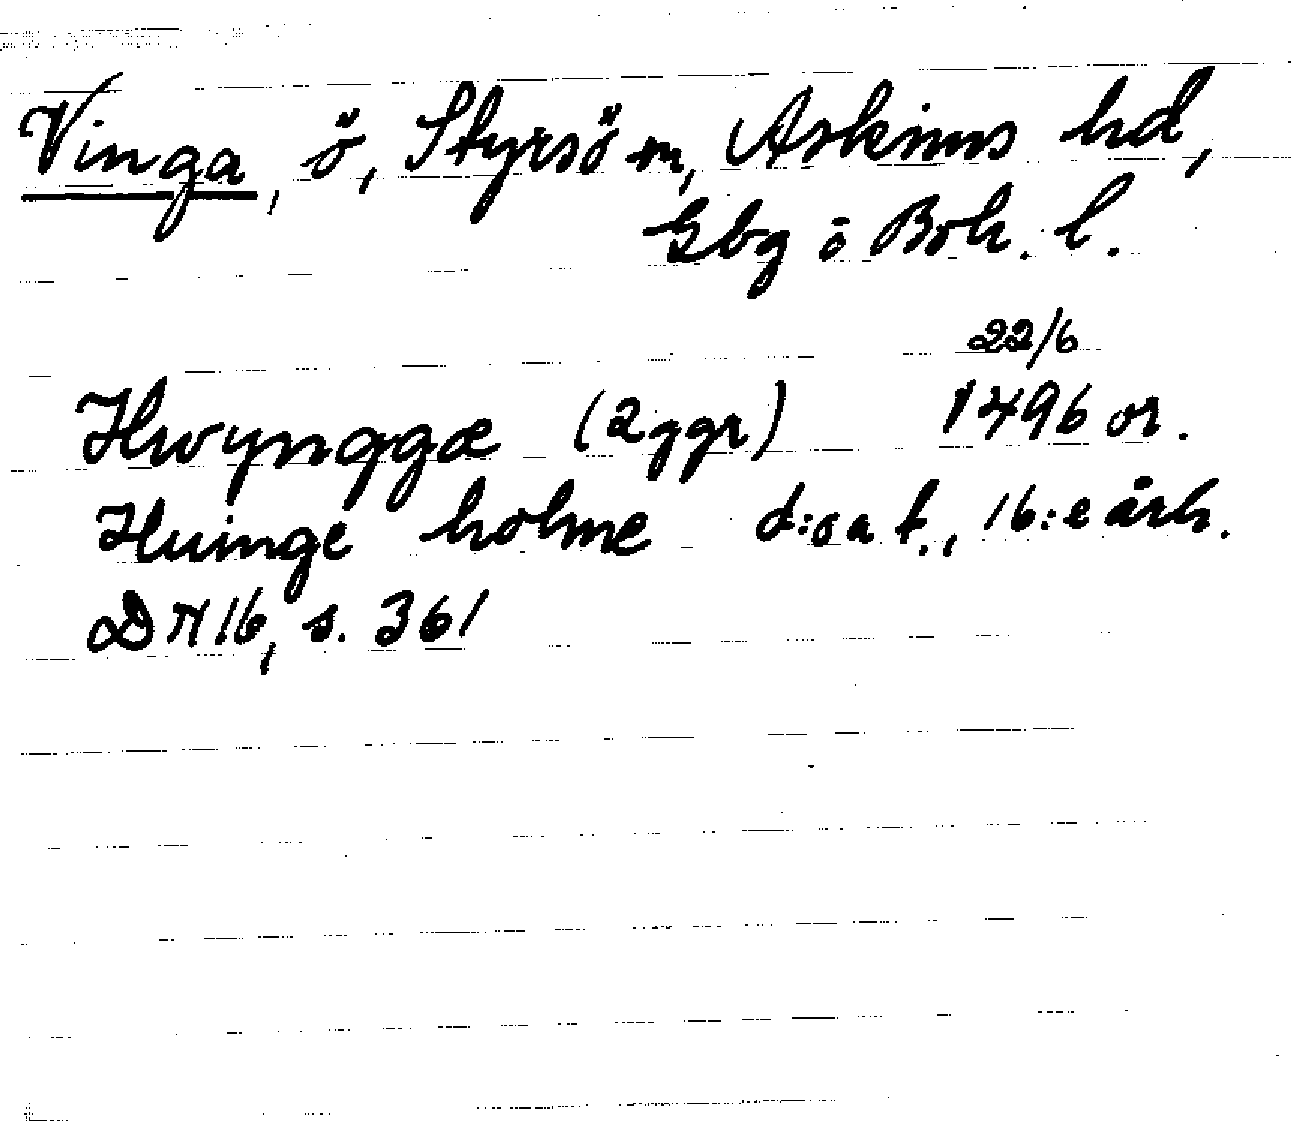 Vinga, ö, Styrsö sn, Askims hd,
Gbg o Boh. l.
22/6
Hwynggæ (2 ggr) 1496 or.
Huinge holme d:o a t., 16:e årh.
DN 16, s. 361